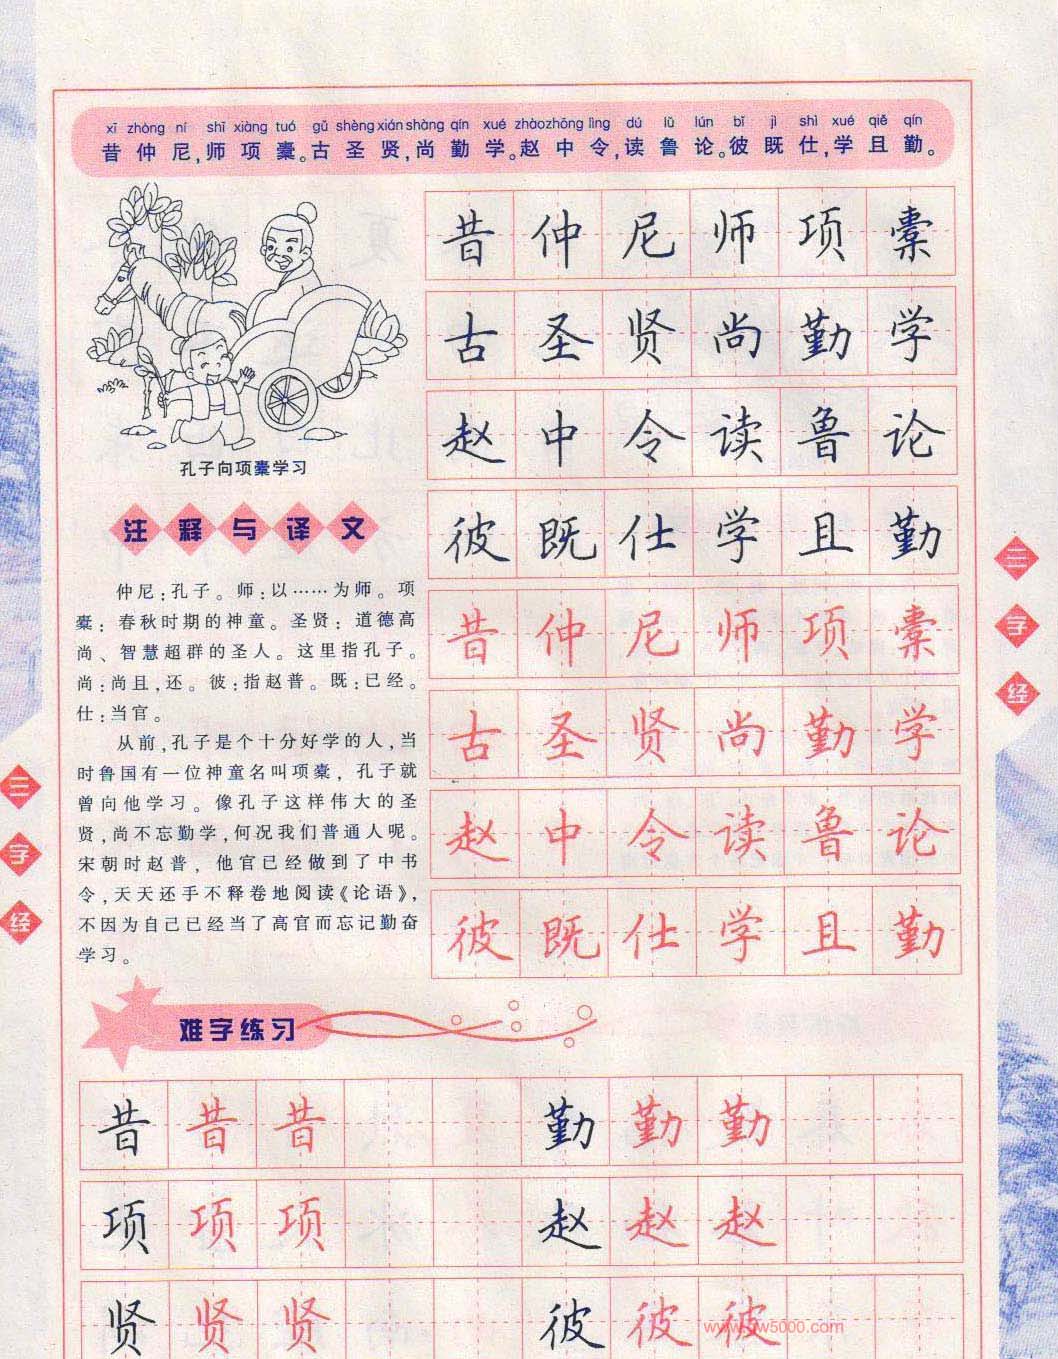 xī zhòng ní shī xiàng tuó gǔ shèng xián shàng qín xué zhào zhōng lìng dú lǔ lún bǐ jì shì xué qiě qín
昔仲尼,师项橐。古圣贤,尚勤学。赵中令,读鲁论。彼既仕,学且勤。
孔子向项橐学习
注释与译文
仲尼:孔子。师:以……为师。项
橐:春秋时期的神童。圣贤:道德高
尚、智慧超群的圣人。这里指孔子。
尚:尚且,还。彼:指赵普。既:已经。
仕:当官。
从前,孔子是个十分好学的人,当
时鲁国有一位神童名叫项橐,孔子就
曾向他学习。像孔子这样伟大的圣
贤,尚不忘勤学,何况我们普通人呢。
宋朝时赵普,他官已经做到了中书
令,天天还手不释卷地阅读《论语》,
不因为自己已经当了高官而忘记勤奋
学习。
昔仲尼师项橐
古圣贤尚勤学
赵中令读鲁论
彼既仕学且勤
昔仲尼师项橐
古圣贤尚勤学
赵中令读鲁论
彼既仕学且勤
三字经
三字经
难字练习
昔昔昔 勤勤勤
项项项 赵赵赵
贤贤贤 彼彼彼